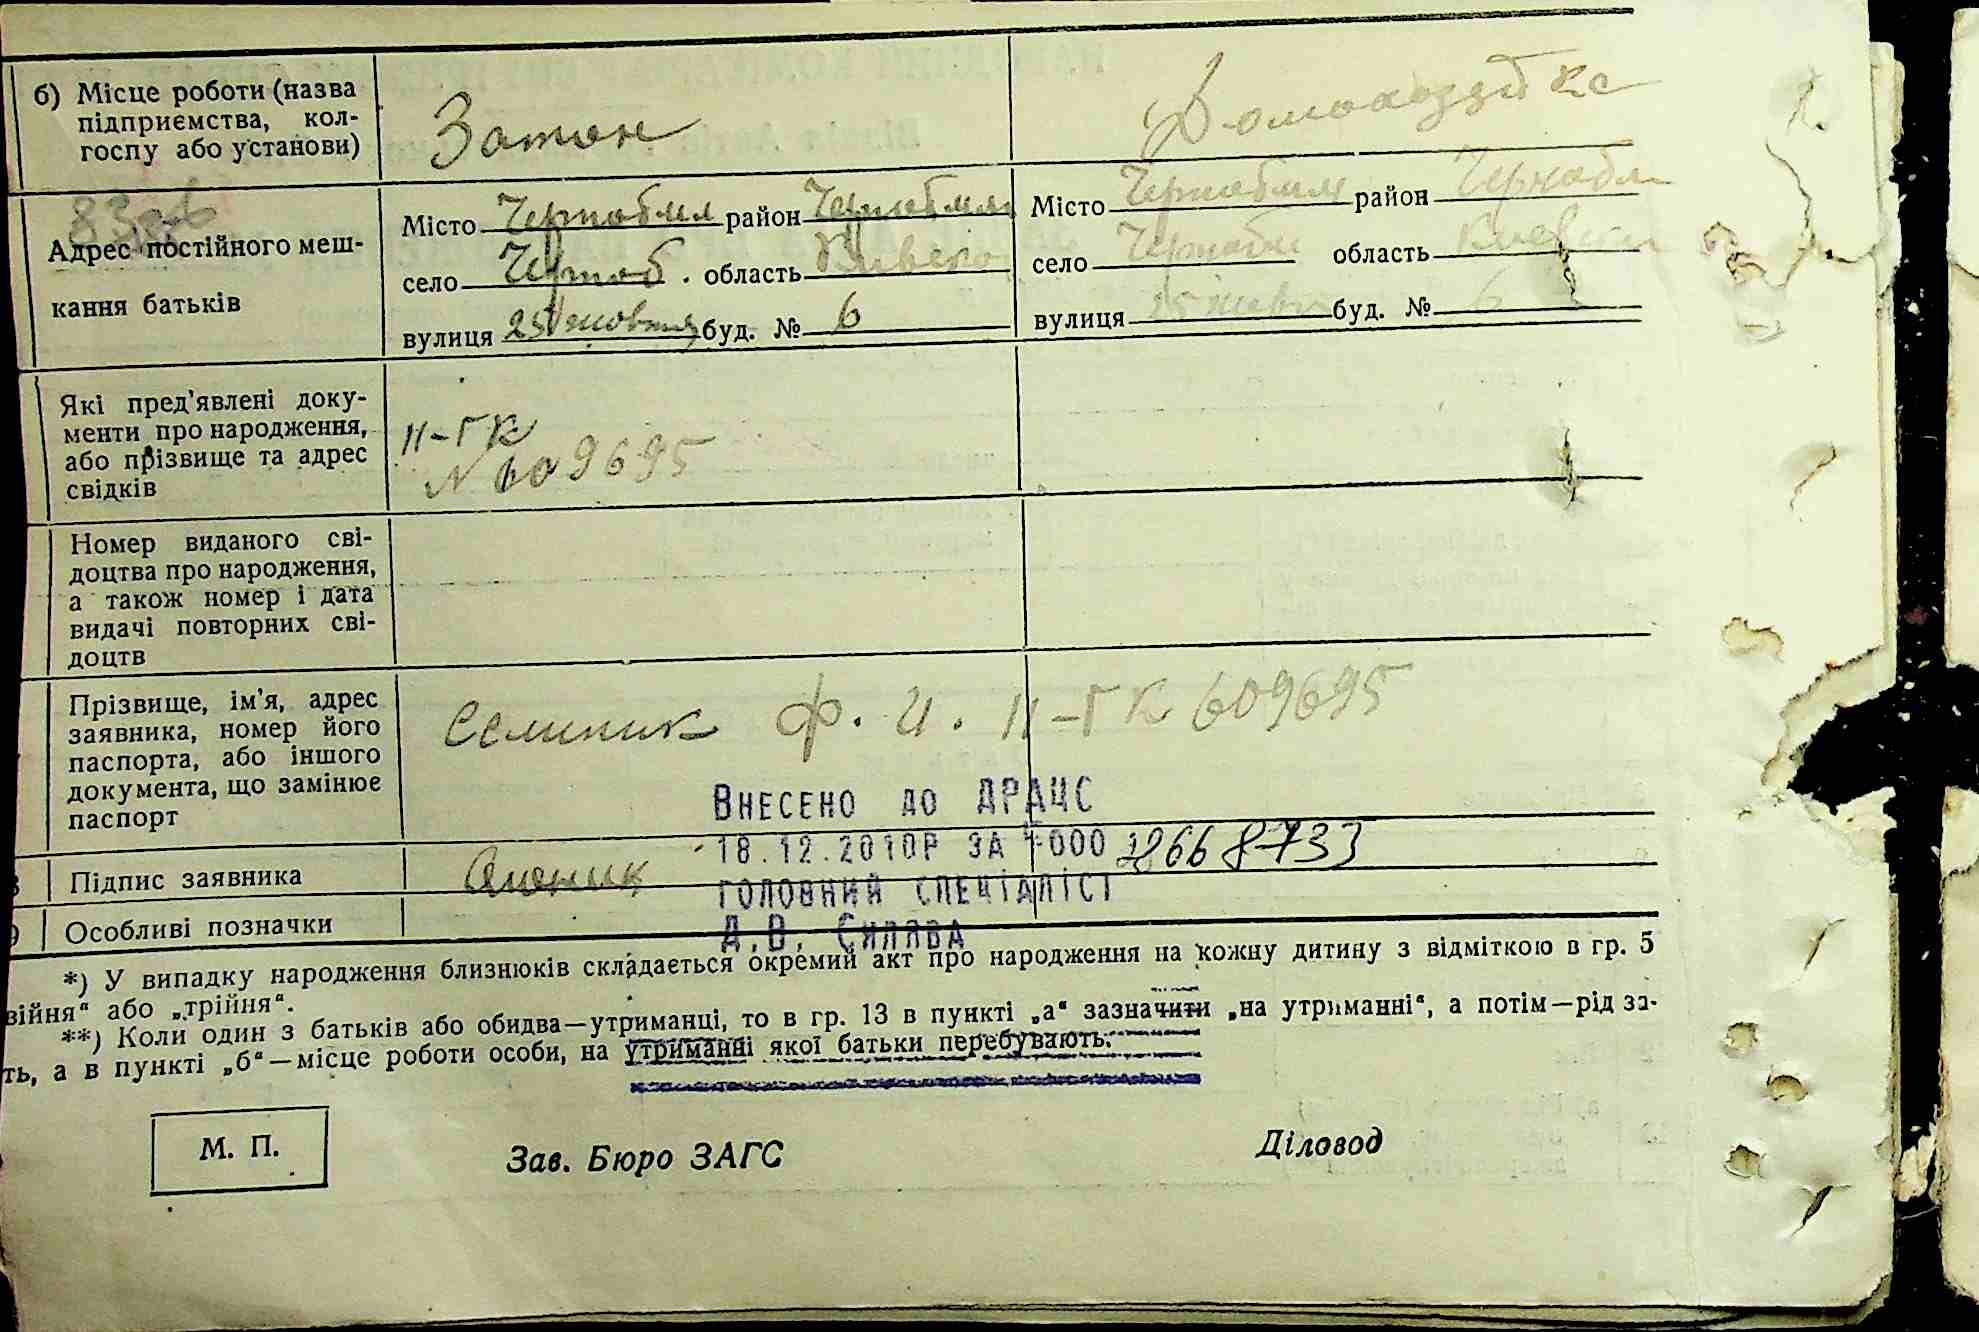 б) Місце роботи (назва
підприємства, кол-
госпу або установи)
Затон
Домохазяйка
Адрес постійного меш-
кання батьків
Місто Чернобил район Чернобил
село Черноб. область Киевск
вулиця 25 жовтня буд. № 6
Місто Чернобил район Чернобл
село Чернобл область Киевск
вулиця 25 жовт буд. № 6
Які пред'явлені доку-
менти про народження,
або прізвище та адрес
свідків
II-ГК
N 609695
Номер виданого сві-
доцтва про народження,
а також номер і дата
видачі повторних сві-
доцтв
Прізвище, ім'я, адрес
заявника, номер його
паспорта, або іншого
документа, що замінює
паспорт
Ф. И. II-ГК 609695
Внесено до ДРАЦС
18.12.2010р за №000 28668733
головний спеціаліст
Д.В. Силява
Підпис заявника
Особливі позначки
*) У випадку народження близнюків складається окремий акт про народження на кожну дитину з відміткою в гр. 5
війня" або „трійня".
**) Коли один з батьків або обидва—утриманці, то в гр. 13 в пункті „а" зазначити „на утриманні", а потім—рід за-
ть, а в пункті „б"—місце роботи особи, на утриманні якої батьки перебувають.
М. П.
Зав. Бюро ЗАГС
Діловод